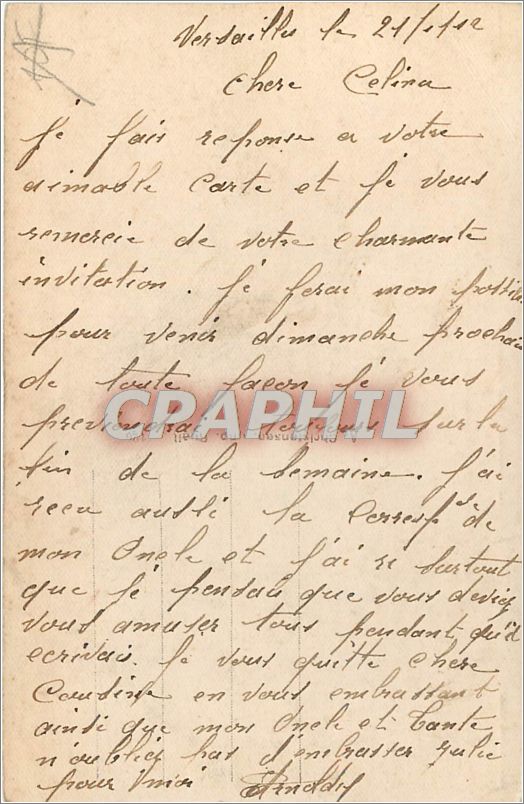 Versailles le 21/1/12
Chere Celina
Je fais reponse a votre
aimable carte et je vous
remercie de votre charmante
invitation. Je ferai mon possi
pour venir dimanche prochain
de toute façon je vous
previendrai toujours sur la
CPARPHIL
fin de la semaine. J'ai
recu aussi la Corresp^ce de
mon Oncle et j'ai ri surtout
que je pensais que vous deviez
vous amuser tous pendant qu'il
ecrivais. Je vous quitte chere
Cousine en vous embrassant
ainsi que mon Oncle et Tante
n'oubliez pas d'embrasser Julie
pour moi